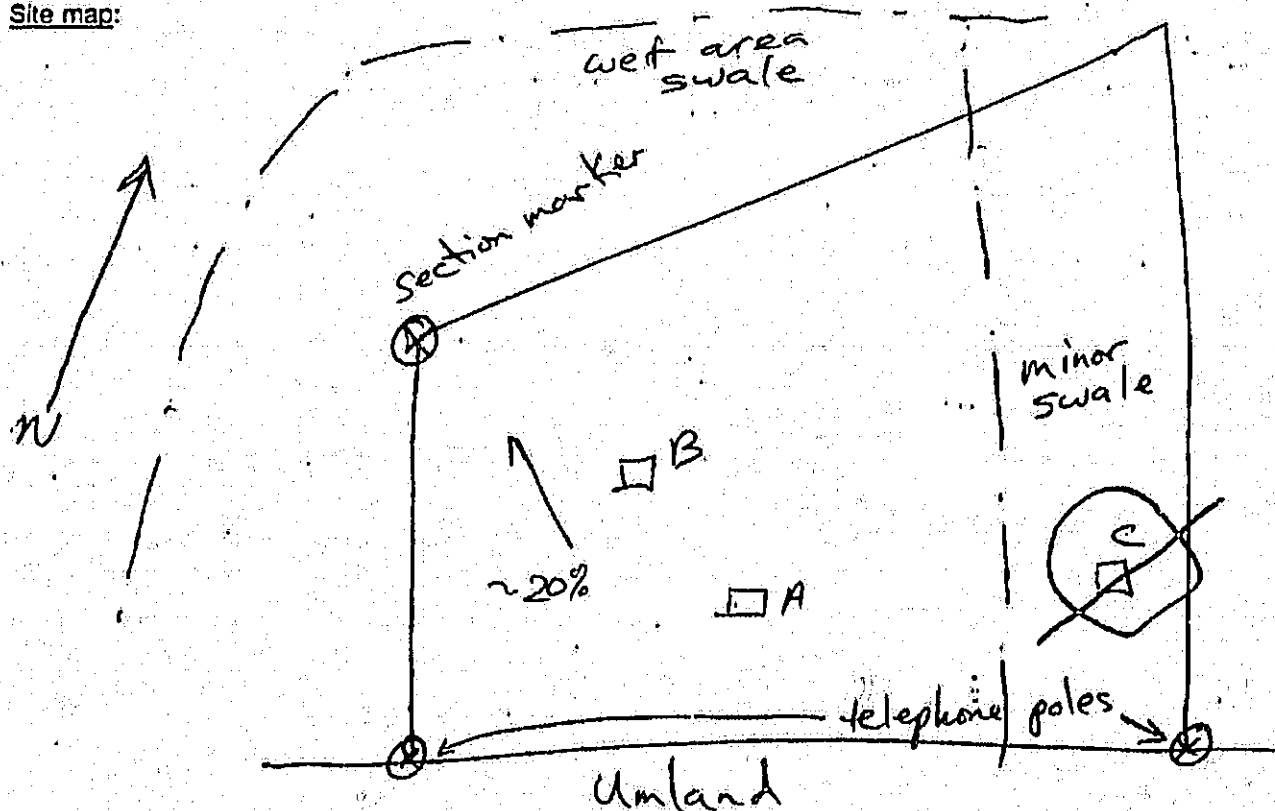 Site map:
wet area
swale
section marker
N
minor
swale
B
C
~20%
A
telephone poles
Umland